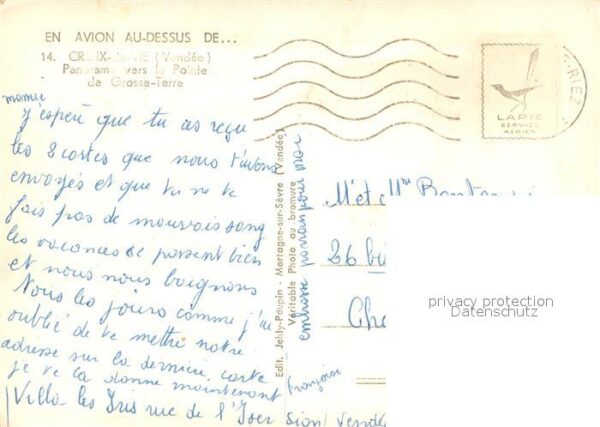 EN AVION AU-DESSUS DE...
14. CROIX-de-VIE (Vendée)
Panorama vers la Pointe
de Grosse-Terre
mamie
j'espère que tu as reçu
les 8 cartes que nous t'avons
envoyés et que tu ne te
fais pas de mauvais sang
les vacances se passent bien
et nous nous baignons
Tous les jours comme j'ai
oublié de te mettre notre
adresse sur la dernière carte
je te la donne maintenant
Villa les Iris rue de l'
Sion Vendée
Françoise
embrasse parrain pour moi
Edit. Jelly-Poupin - Mortagne-sur-Sèvre (Vendée)
Véritable Photo au bromure
LAPIE
SERVICE
AERIEN
RIEZ
M et Mme
26 bis
Che
privacy protection
Datenschutz